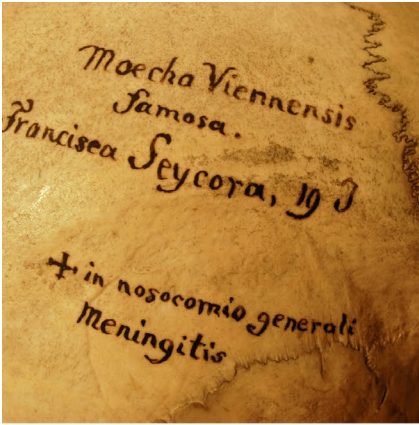 Moecha Viennensis
famosa.
Francisca Seycora, 19 J
✝ in nosocomio generali
Meningitis